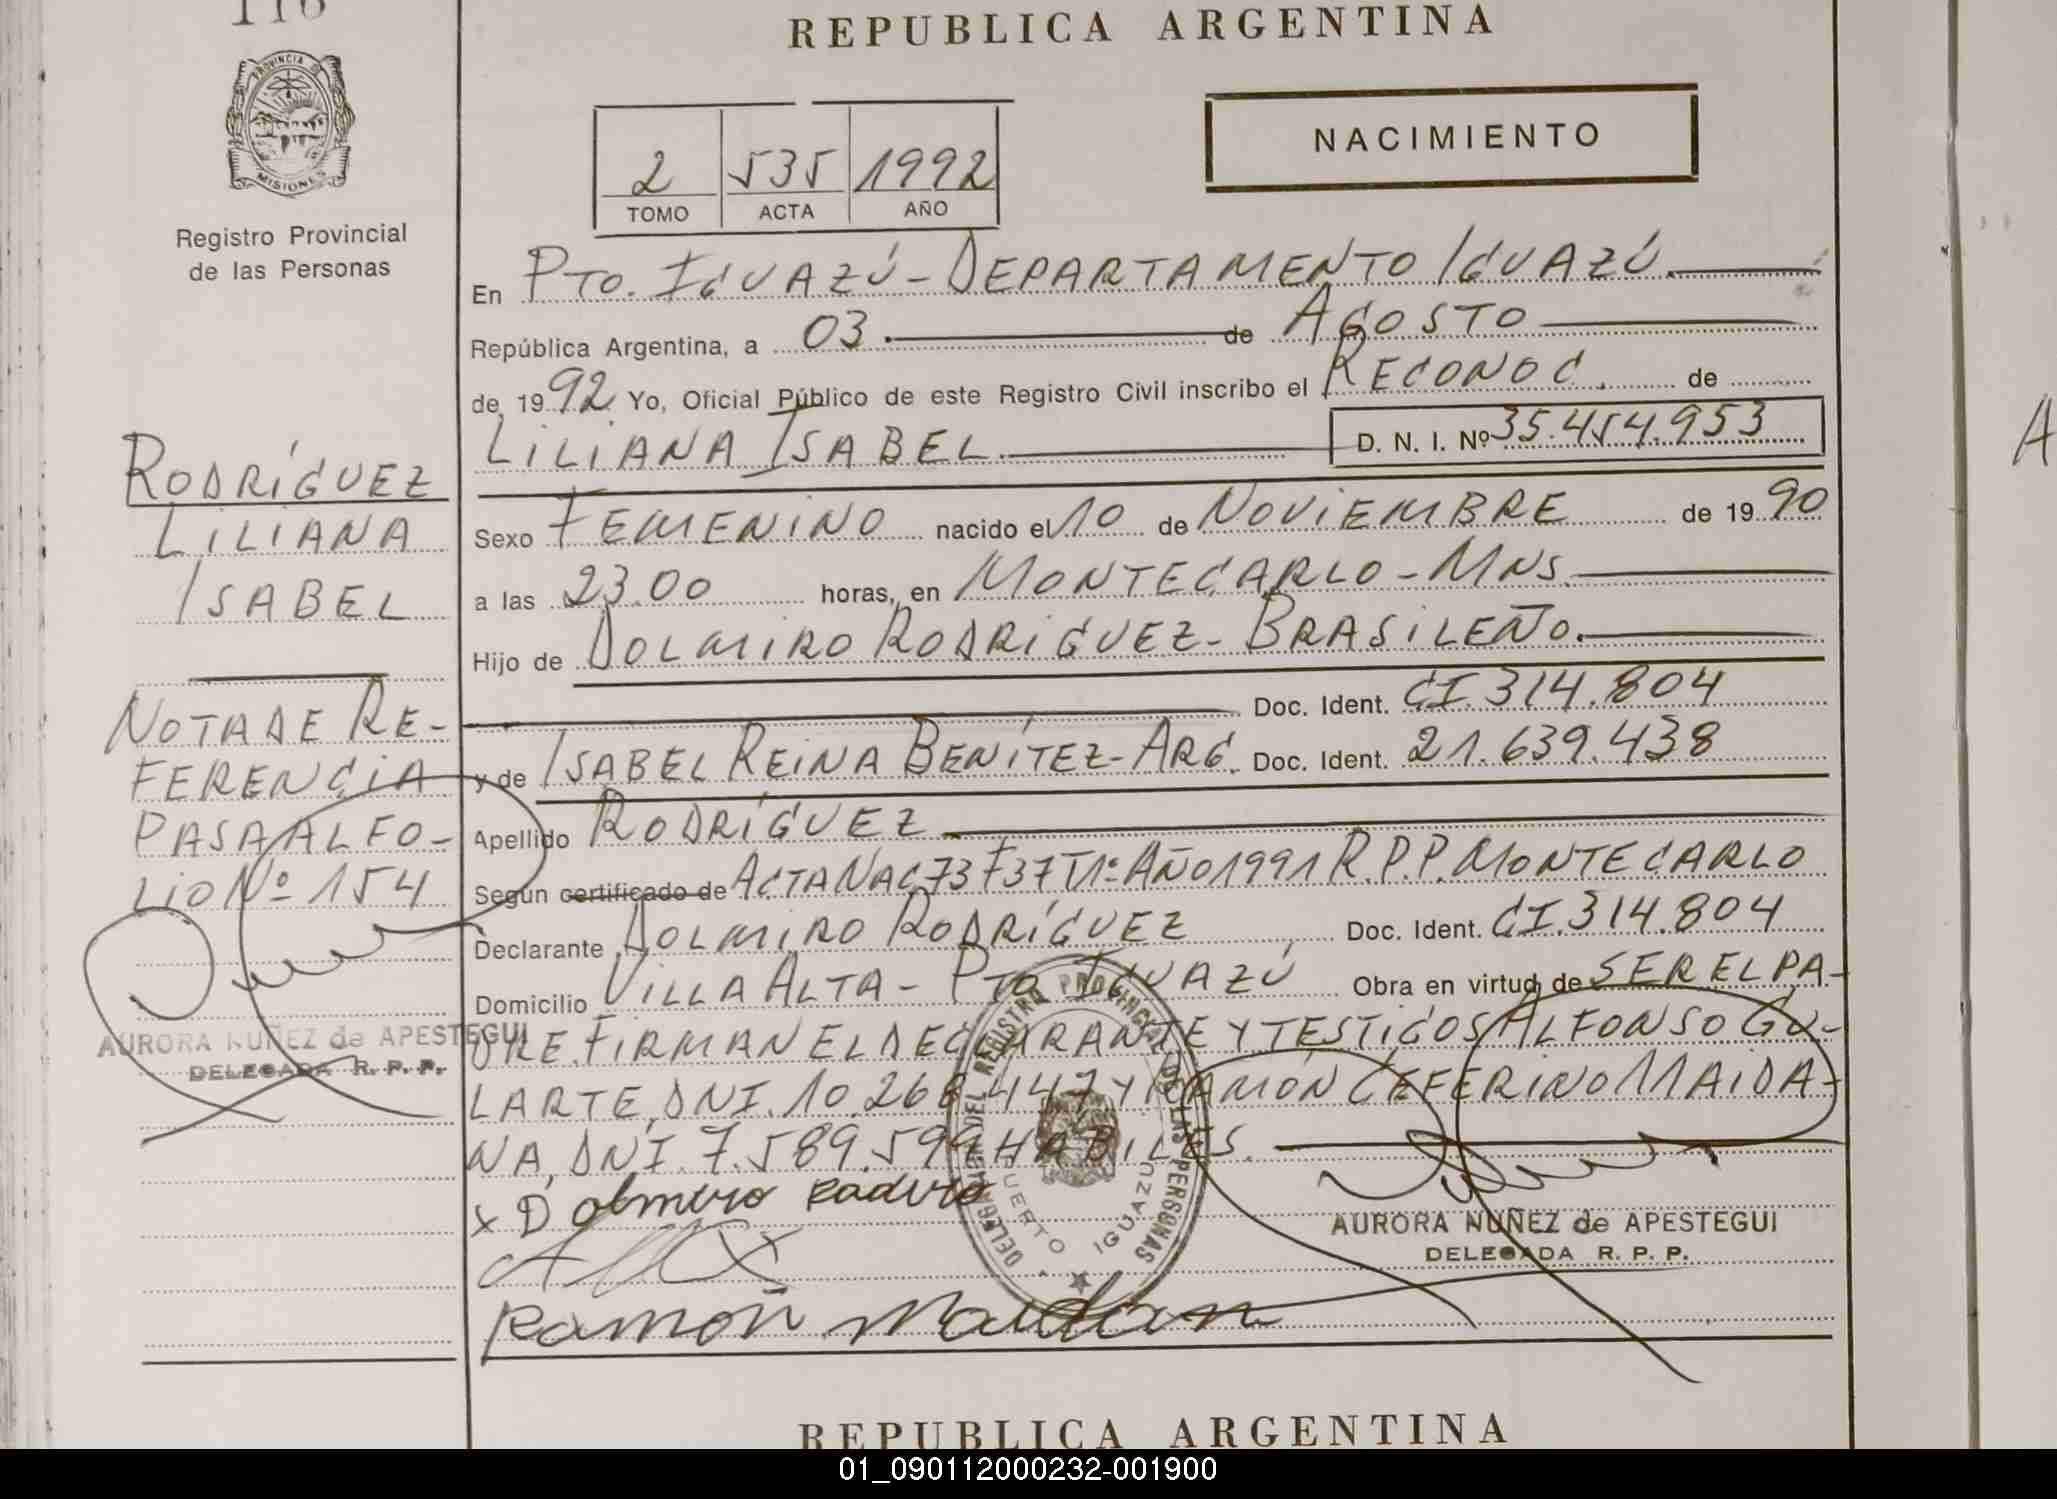 116
PROVINCIA DE
MISIONES
Registro Provincial
de las Personas
RODRÍGUEZ
LILIANA
ISABEL
NOTA DE RE-
FERENCIA
PASA AL FO-
LIO Nº 154
AURORA NUÑEZ de APESTEGUI
DELEGADA R. P. P.
REPUBLICA ARGENTINA
2 535 1992
TOMO ACTA AÑO
NACIMIENTO
En PTO. IGUAZÚ - DEPARTAMENTO IGUAZÚ.
República Argentina, a 03 de AGOSTO
de 1992 Yo, Oficial Público de este Registro Civil inscribo el RECONOC. de
LILIANA ISABEL. D. N. I. Nº 35.454.953
Sexo FEMENINO nacido el 10 de NOVIEMBRE de 1990
a las 23.00 horas, en MONTECARLO - MNS.
Hijo de DOLMIRO RODRÍGUEZ - BRASILEÑO.
Doc. Ident. CI. 314.804
y de ISABEL REINA BENÍTEZ - ARG. Doc. Ident. 21.639.438
Apellido RODRÍGUEZ
Según certificado de ACTA NAC 73 F 37 T 1º AÑO 1991 R.P.P. MONTECARLO
Declarante DOLMIRO RODRÍGUEZ Doc. Ident. CI. 314.804
Domicilio VILLA ALTA - PTO IGUAZÚ Obra en virtud de SER EL PA-
DRE. FIRMAN EL DECLARANTE Y TESTIGOS ALFONSO GU-
LARTE, DNI. 10.268.447 Y RAMÓN CEFERINO MAIDA-
NA, DNI. 7.589.599 HABILES.
x D olmiro
Ramon Maidan
DELEGACION DEL REGISTRO PROVINCIAL DE LAS PERSONAS
PUERTO IGUAZU
AURORA NUÑEZ de APESTEGUI
DELEGADA R. P. P.
REPUBLICA ARGENTINA
A
01_090112000232-001900